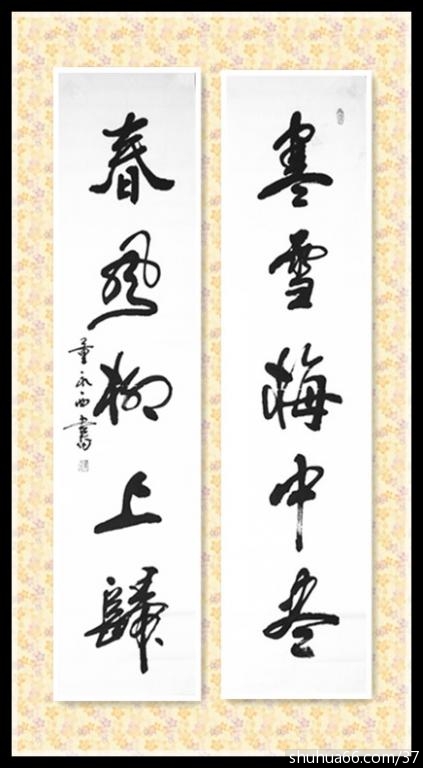 寒雪梅中尽
春風柳上歸
董永西書
shuhua66.com/37